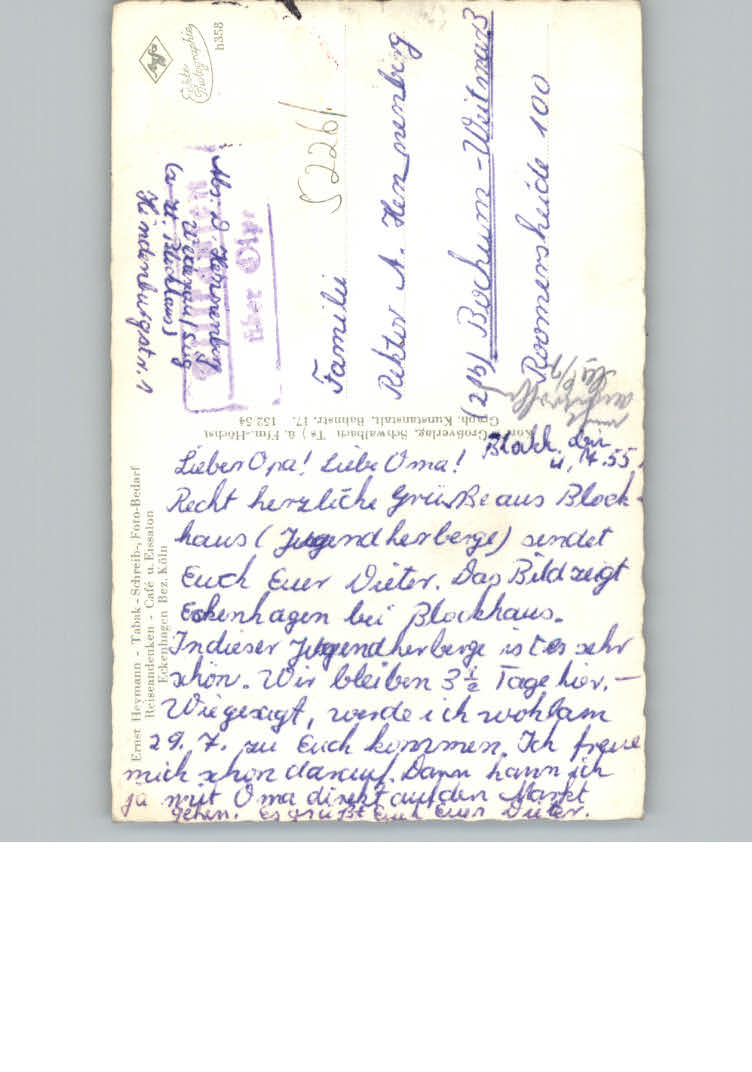 Ernst Heymann - Tabak - Schreib-, Foto-Bedarf
Reiseandenken - Café u. Eissalon
Eckenhagen Bez. Köln
Blockh. den
11.7.55
Lieber Opa! Liebe Oma!
Recht herzliche Grüße aus Block-
haus (Jugendherberge) sendet
Euch Euer Dieter. Das Bild zeigt
Eckenhagen bei Blockhaus.
In dieser Jugendherberge ist es sehr
schön. Wir bleiben 3½ Tage hier. —
Wie gesagt, werde ich wohl am
29. 7. zu Euch kommen. Ich freue
mich schon darauf. Dann kann ich
ja mit Oma direkt auf den Markt
gehen. Es grüßt Euch Euer Dieter.
Großverlag, Schwalbach Ts.) ü. Ffm.-Höchst
Graph. Kunstanstalt, Bahnstr. 17. 152 54
Agfa
Echte
Photographie
h358
Abs. D. Hennenberg
Hindenburgstr. 1
über Olpe
52261
Familie
Rektor A. Hennenberg
(21b) Bochum-Weitmar
Roomersheide 100